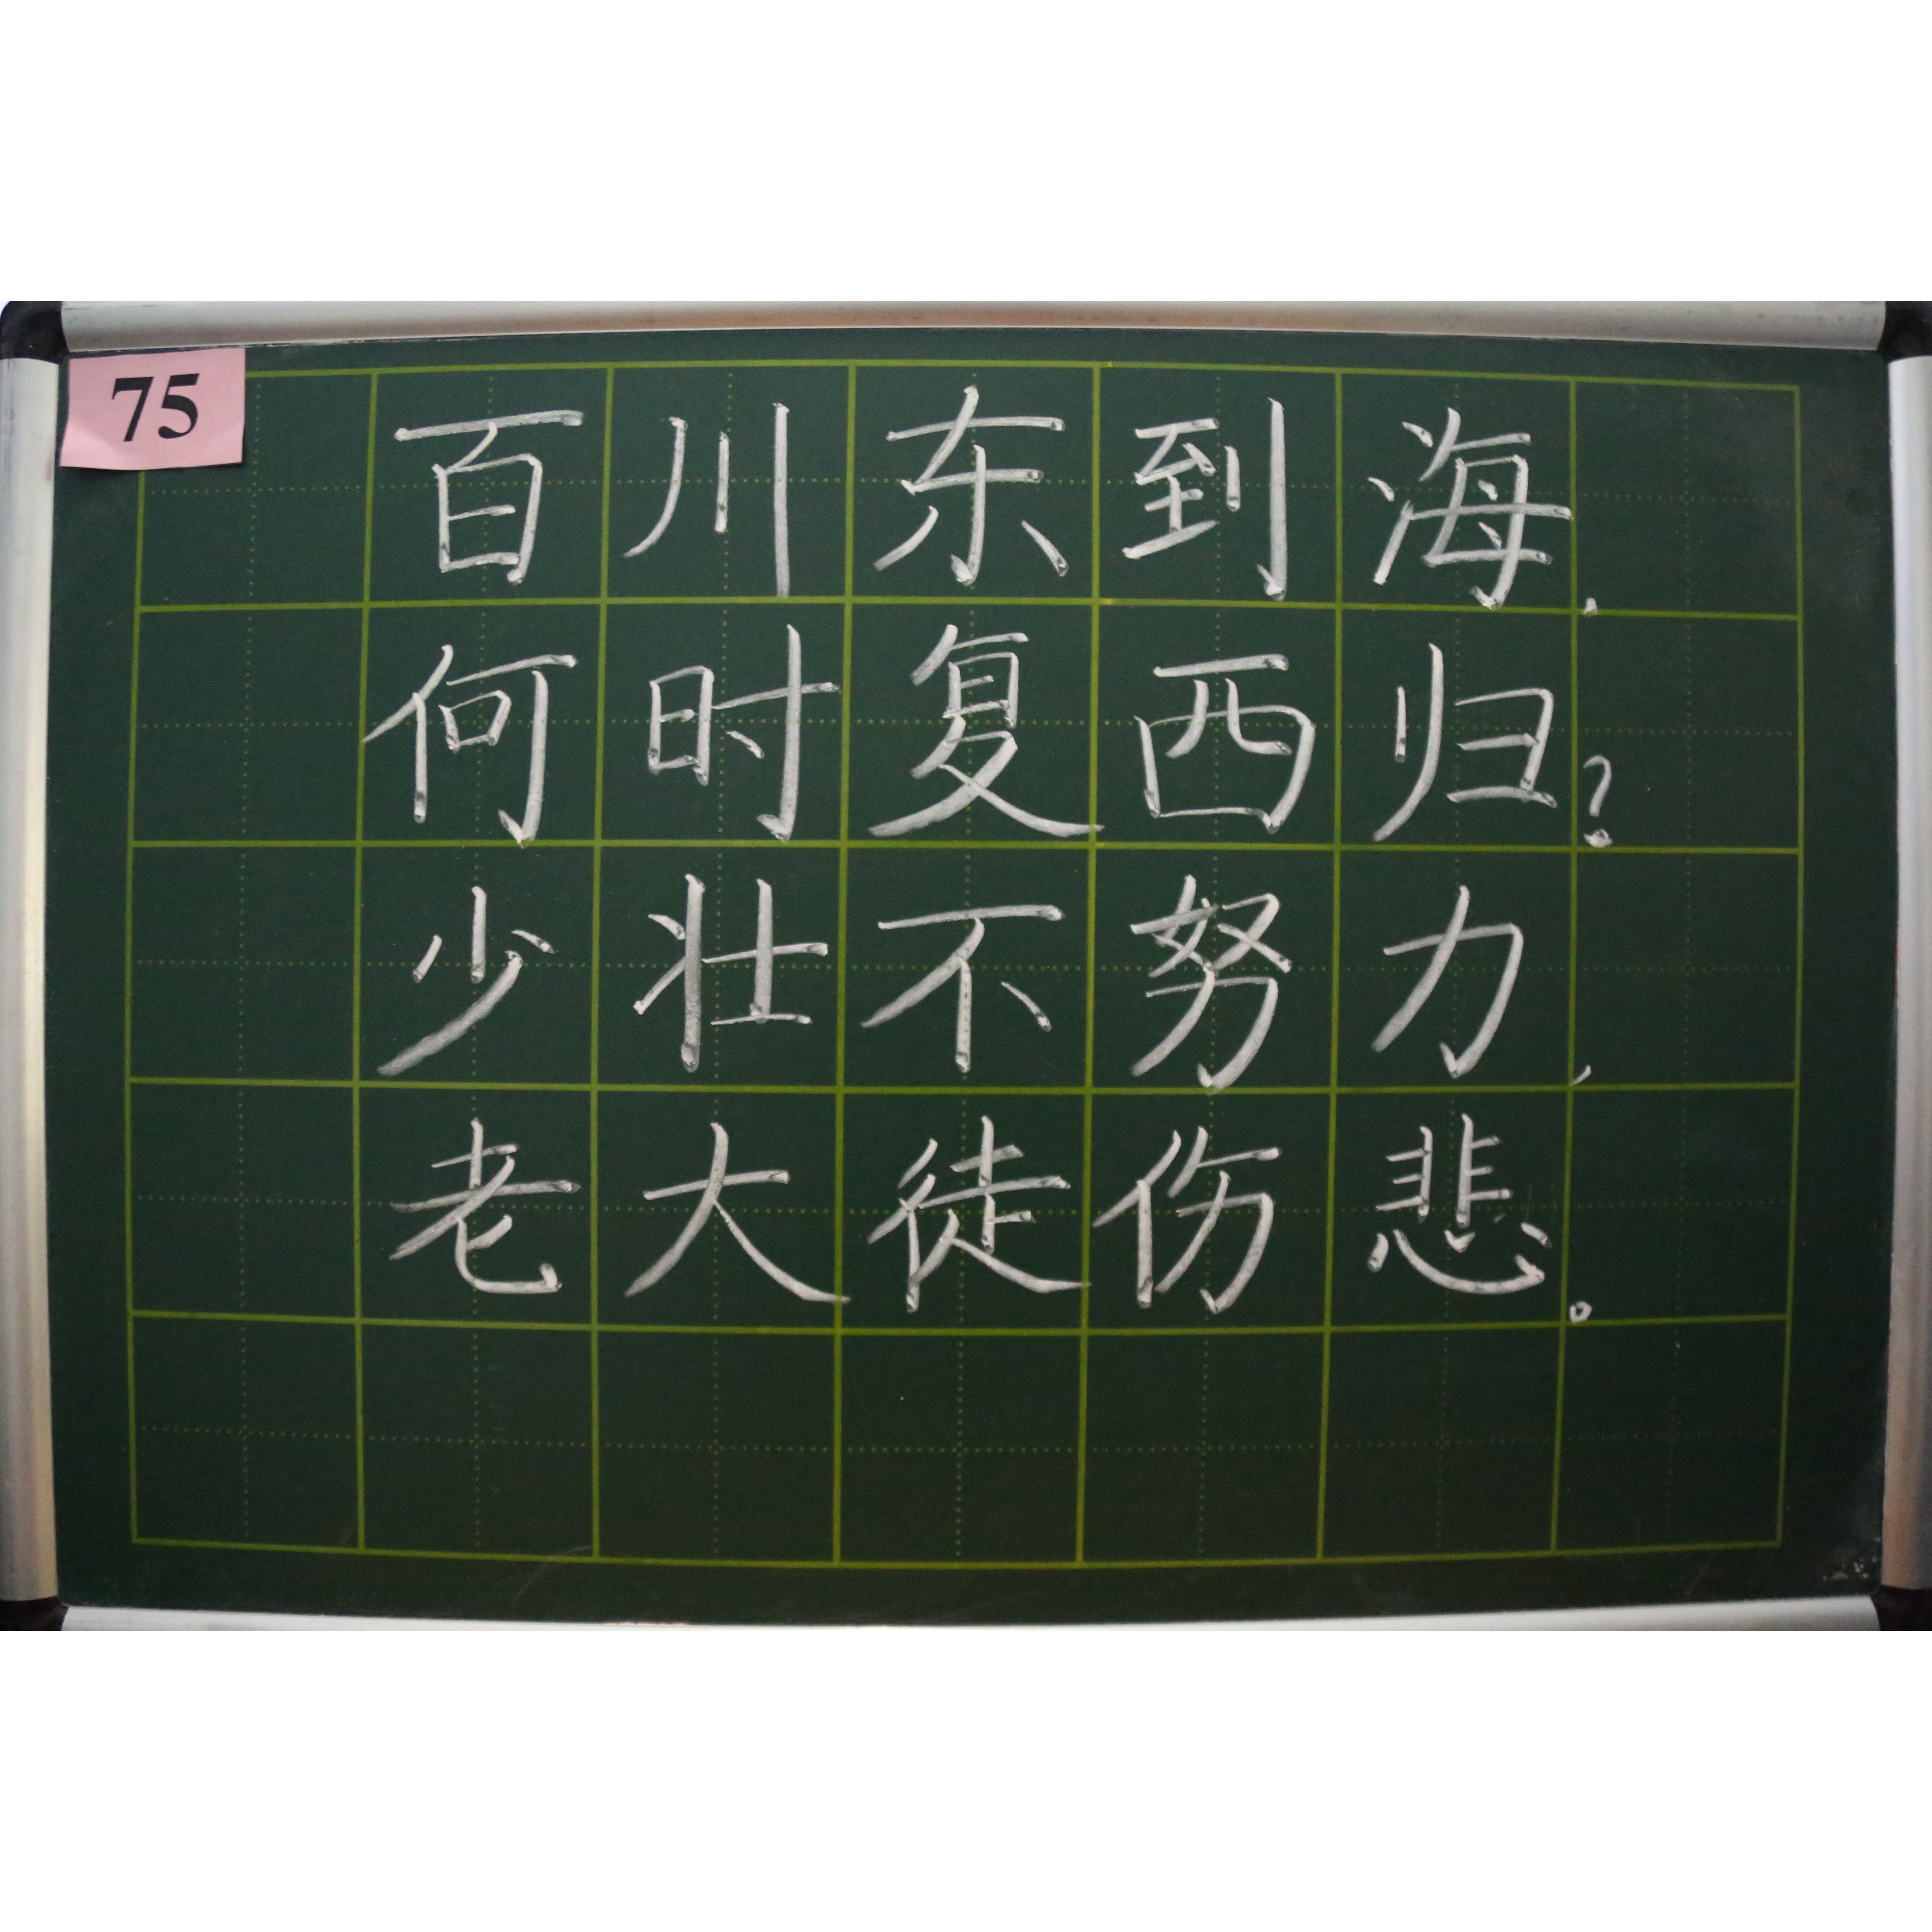 75
百川东到海，
何时复西归？
少壮不努力，
老大徒伤悲。